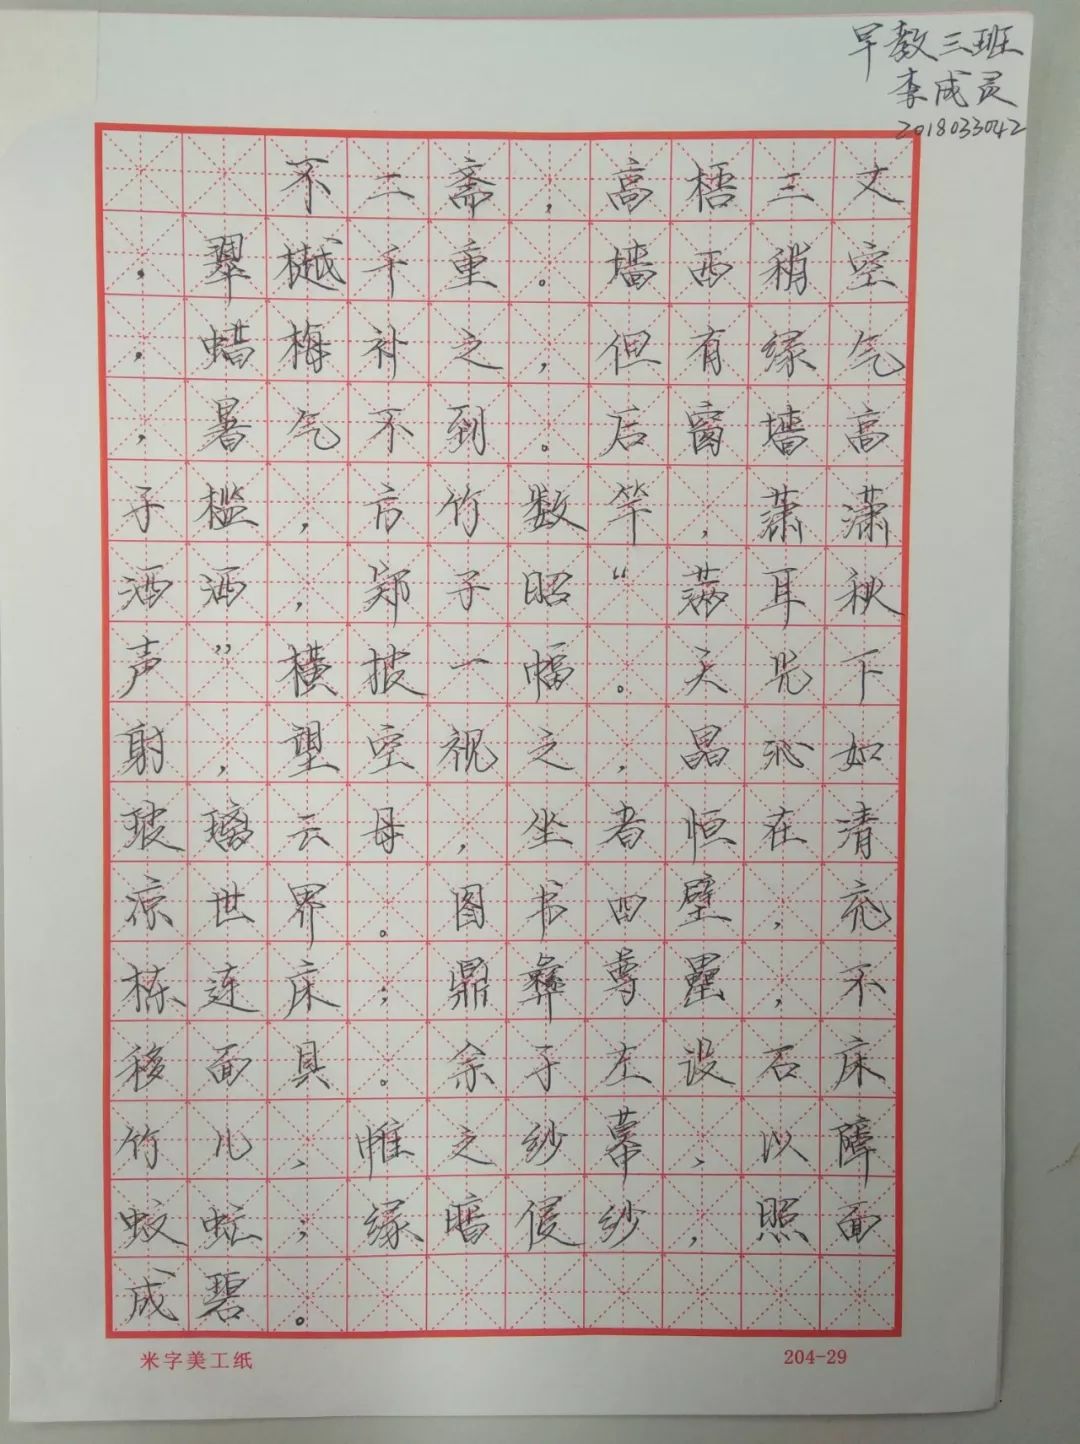 早教三班
李成灵
2018033042
不二斋，高梧三文
，翠樾千重。墙西稍空
，蜡梅补之，但有缘气
，暑气不到。后窗墙高
子槛，方竹数竿，萧潇
洒洒，郑子昭“满耳秋
声”横披一幅。天光下
射，望空视之，晶沁如
玻璃云母，坐者恒在清
凉世界。图书四壁，充
栋连床；鼎彝尊罍，不
移而具。余于左设石床
竹几，帷之纱幕，以障
蚊虻；缘暗侵纱，照面
成碧。
米字美工纸
204-29